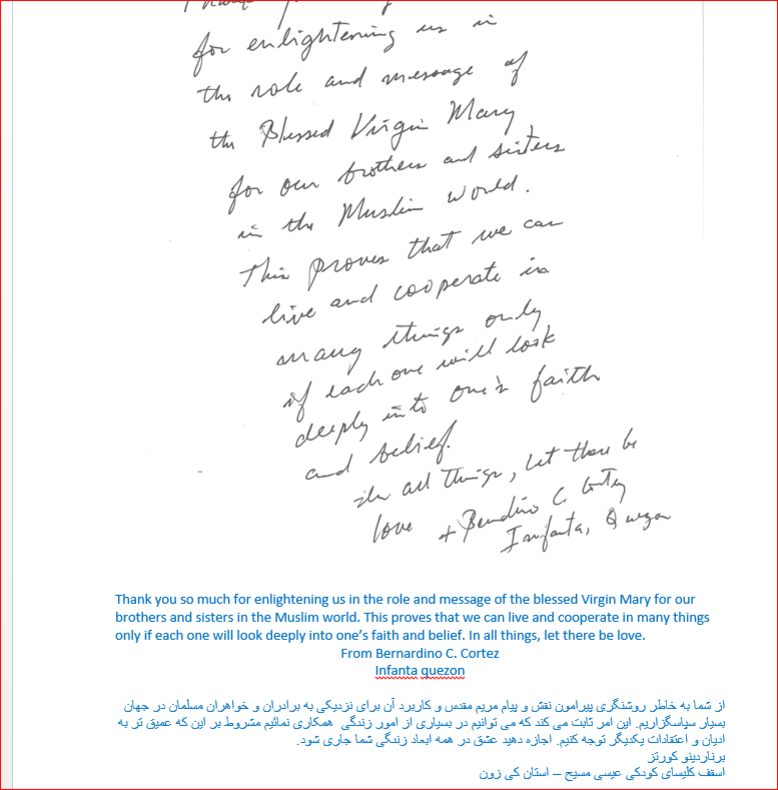 for enlightening us in
the role and message of
the Blessed Virgin Mary
for our brothers and sisters
in the Muslim world.
This proves that we can
live and cooperate in
many things only
if each one will look
deeply into one's faith
and belief.
In all things, let there be
love + Bernardino C. Cortez
Infanta, Quezon
Thank you so much for enlightening us in the role and message of the blessed Virgin Mary for our
brothers and sisters in the Muslim world. This proves that we can live and cooperate in many things
only if each one will look deeply into one’s faith and belief. In all things, let there be love.
From Bernardino C. Cortez
Infanta quezon
از شما به خاطر روشنگری پیرامون نقش و پیام مریم مقدس و کاربرد آن برای نزدیکی به برادران و خواهران مسلمان در جهان
بسیار سپاسگزاریم. این امر ثابت می کند که می توانیم در بسیاری از امور زندگی همکاری نمائیم مشروط بر این که عمیق تر به
ادیان و اعتقادات یکدیگر توجه کنیم. اجازه دهید عشق در همه ابعاد زندگی شما جاری شود.
برناردینو کورتز
اسقف کلیسای کودکی عیسی مسیح – استان کی زون